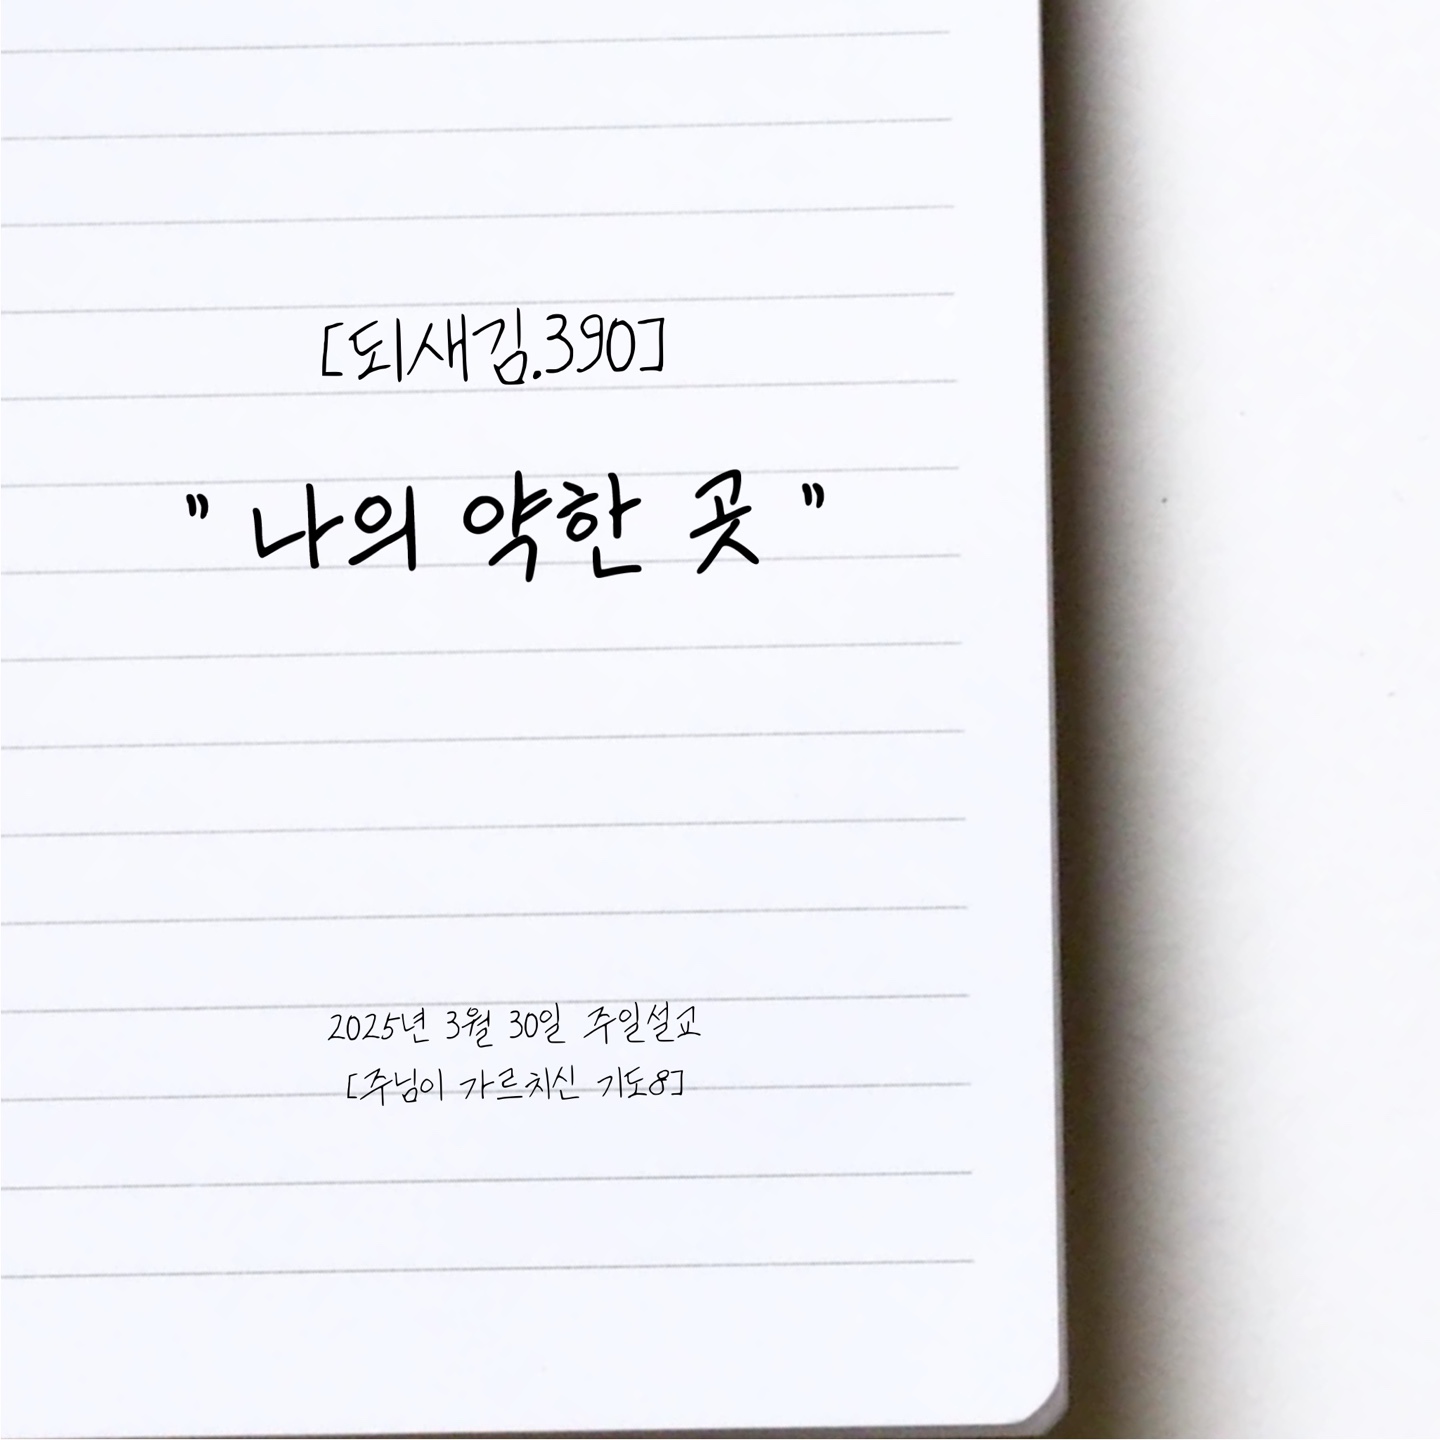 [되새김.390]
" 나의 약한 곳 "
2025년 3월 30일 주일설교
[주님이 가르치신 기도8]